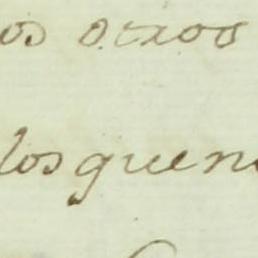 os otros
los quen